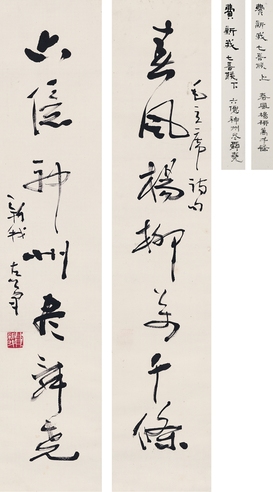 春風楊柳萬千條
毛主席詩句
六億神州尽舜堯
新我左筆
費新我七言聯上 春風楊柳萬千條
費新我七言聯下 六億神州尽舜堯